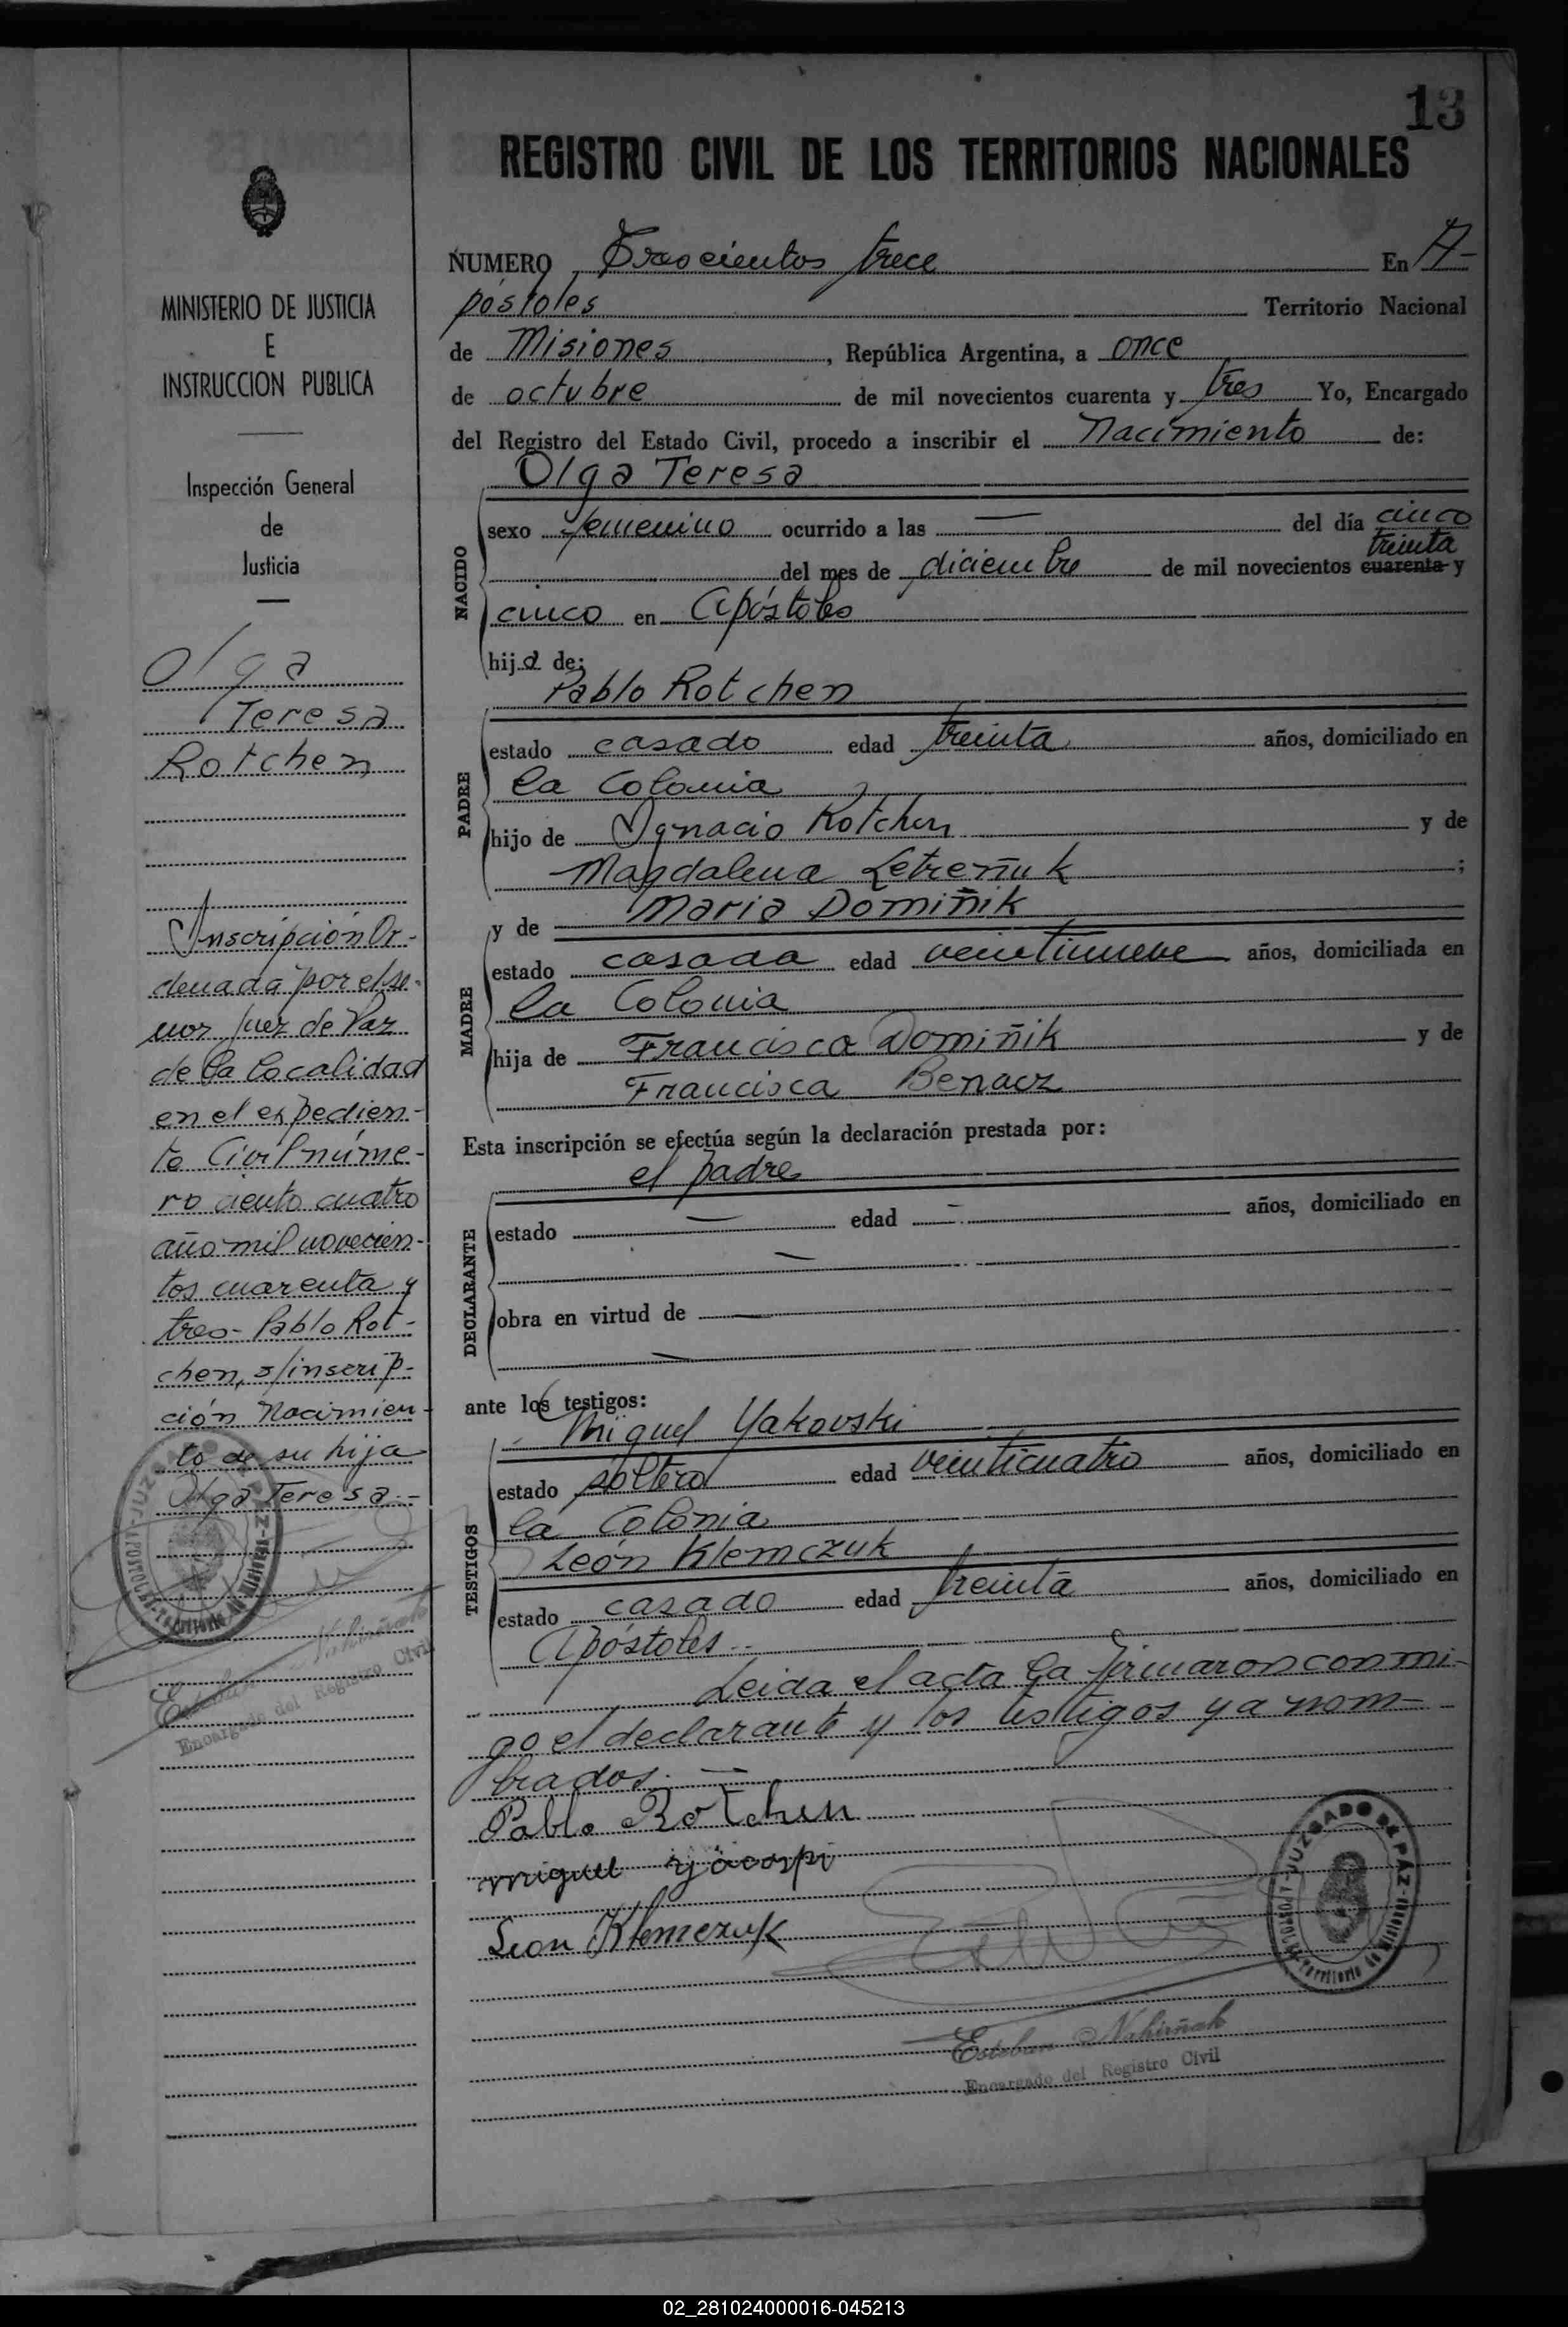 13
REGISTRO CIVIL DE LOS TERRITORIOS NACIONALES
NUMERO Trescientos trece En A-
póstoles Territorio Nacional
de Misiones, República Argentina, a once
de octubre de mil novecientos cuarenta y tres Yo, Encargado
del Registro del Estado Civil, procedo a inscribir el Nacimiento de:
Olga Teresa
NACIDO
sexo femenino ocurrido a las — del día cinco
treinta
del mes de diciembre de mil novecientos cuarenta y
cinco en Apóstoles
hija de:
Pablo Rotchen
PADRE
estado casado edad treinta años, domiciliado en
la Colonia
hijo de Ygnacio Rotchen y de
Magdalena Letreñuk;
y de Maria Domiñik
MADRE
estado casada edad veintinueve años, domiciliada en
la Colonia
hija de Francisco Domiñik y de
Francisca Benacz
Esta inscripción se efectúa según la declaración prestada por:
el padre
DECLARANTE
estado — edad — años, domiciliado en
—
obra en virtud de —
—
ante los testigos:
Miguel Yakovski
TESTIGOS
estado soltero edad veinticuatro años, domiciliado en
la Colonia
León Klemczuk
estado casado edad treinta años, domiciliado en
Apóstoles
Leida el acta la firmaron conmi-
go el declarante y los testigos ya nom-
brados. —
Pablo Rotchen
miguel
Leon Klemczuk
JUZGADO DE PAZ
Territorio de Misiones
Esteban Nahirñak
Encargado del Registro Civil
MINISTERIO DE JUSTICIA
E
INSTRUCCION PUBLICA
Inspección General
de
Justicia
Olga
Teresa
Rotchen
Inscripción Or-
denada por el se-
ñor Juez de Paz
de la localidad
en el expedien-
te Civil núme-
ro ciento cuatro
año mil novecien-
tos cuarenta y
tres - Pablo Rot-
chen, s/inscrip-
ción Nacimien-
to de su hija
Olga Teresa.-
Esteban Nahirñak
Encargado del Registro Civil
02_281024000016-045213